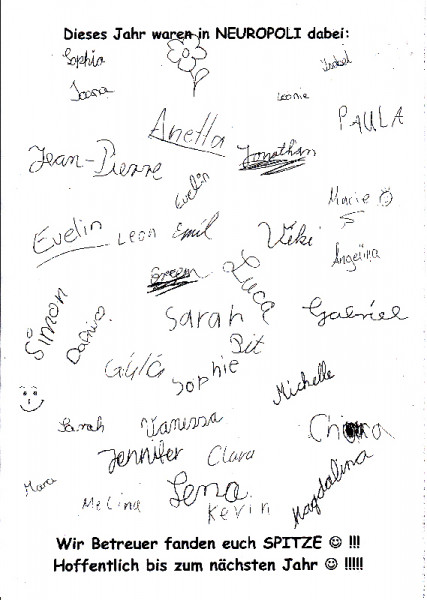 Dieses Jahr waren in NEUROPOLI dabei:
Sophia
Isabel
Leonie
PAULA
Anella
Jonathan
Jean-Pierre
Evelin
Marie
Evelin
Leon
Emil
Viki
Angelina
Luca
Simon
Sarah
Gabriel
Pit
Sophie
Michelle
Sarah
Vanissa
Chiara
Jennifer
Clara
Mara
Melina
Lena
Kevin
Magdalina
Wir Betreuer fanden euch SPITZE ☺ !!!
Hoffentlich bis zum nächsten Jahr ☺ !!!!!